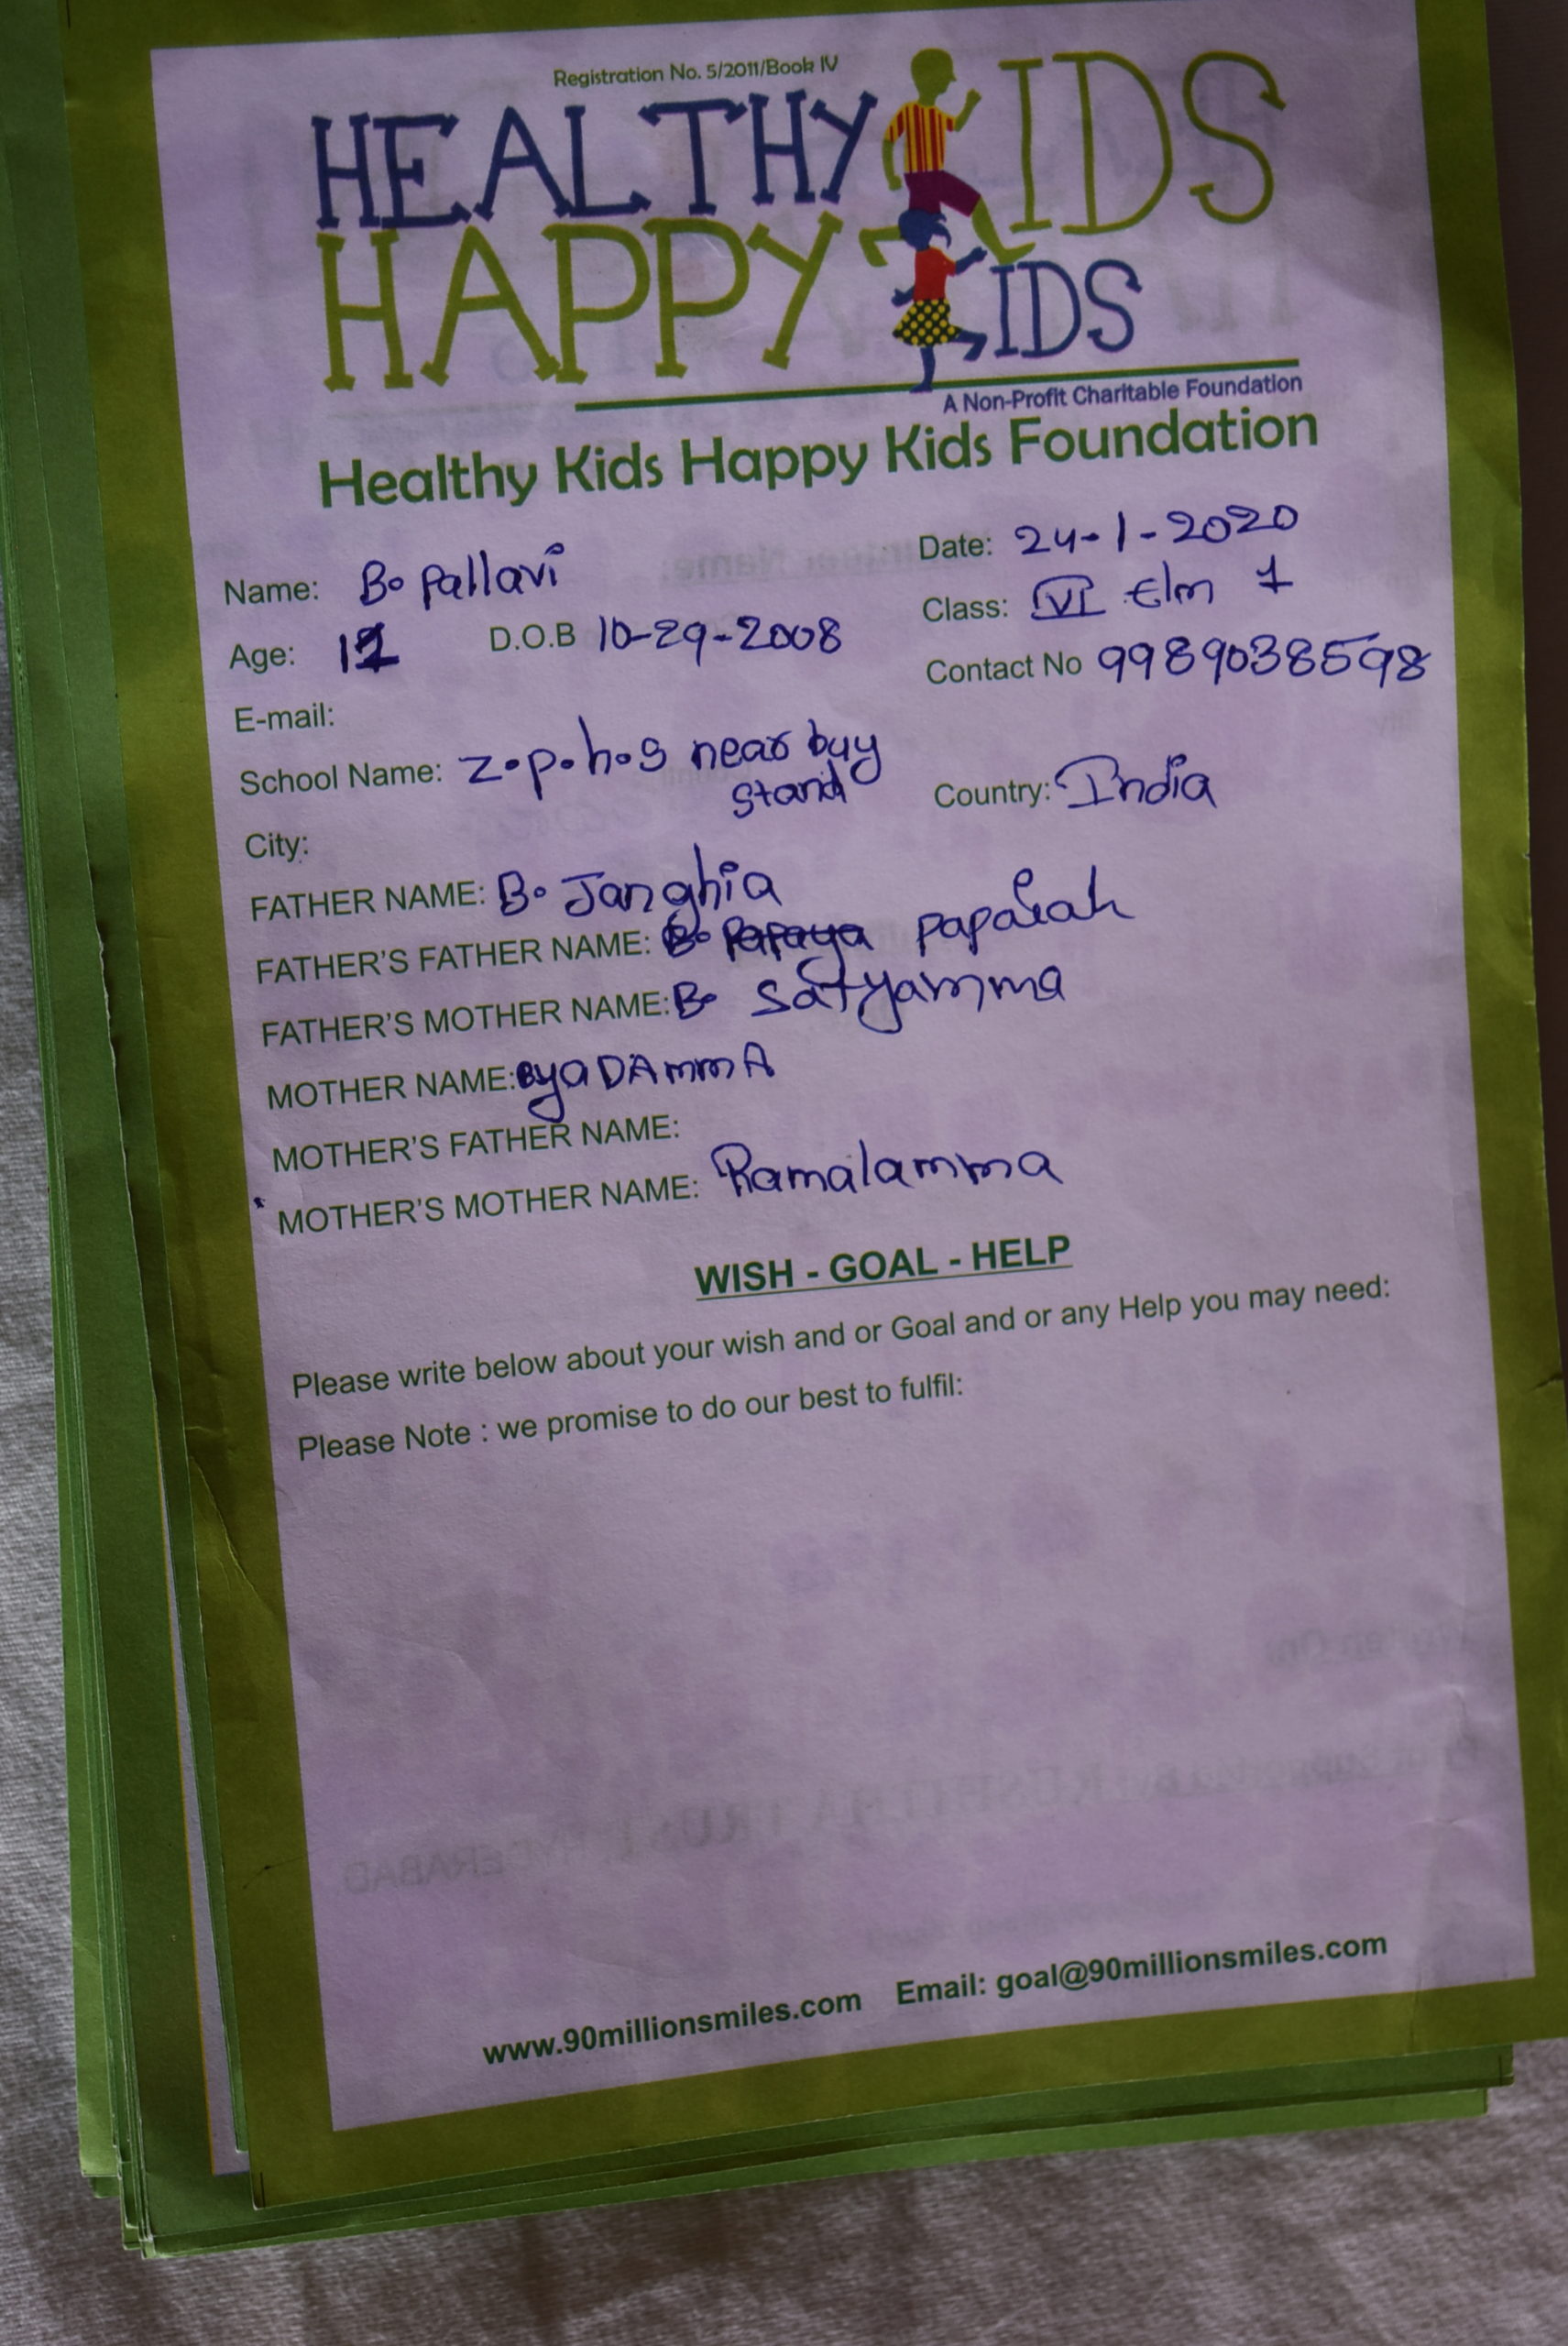 Registration No. 5/2011/Book IV
HEALTHY KIDS
HAPPY KIDS
A Non-Profit Charitable Foundation
Healthy Kids Happy Kids Foundation
Date: 24-1-2020
Name: B. Pallavi
Class: VI Elm 1
Age: D.O.B 10-29-2008
Contact No 99890385598
E-mail:
School Name: Z.p.h.s near buy
stand
Country: India
City:
FATHER NAME: B. Janghia
FATHER'S FATHER NAME: B. Papaya papaiah
FATHER'S MOTHER NAME: B. Satyamma
MOTHER NAME: yaDAmmA
MOTHER'S FATHER NAME:
MOTHER'S MOTHER NAME: Ramalamma
WISH - GOAL - HELP
Please write below about your wish and or Goal and or any Help you may need:
Please Note : we promise to do our best to fulfil:
www.90millionsmiles.com Email: goal@90millionsmiles.com